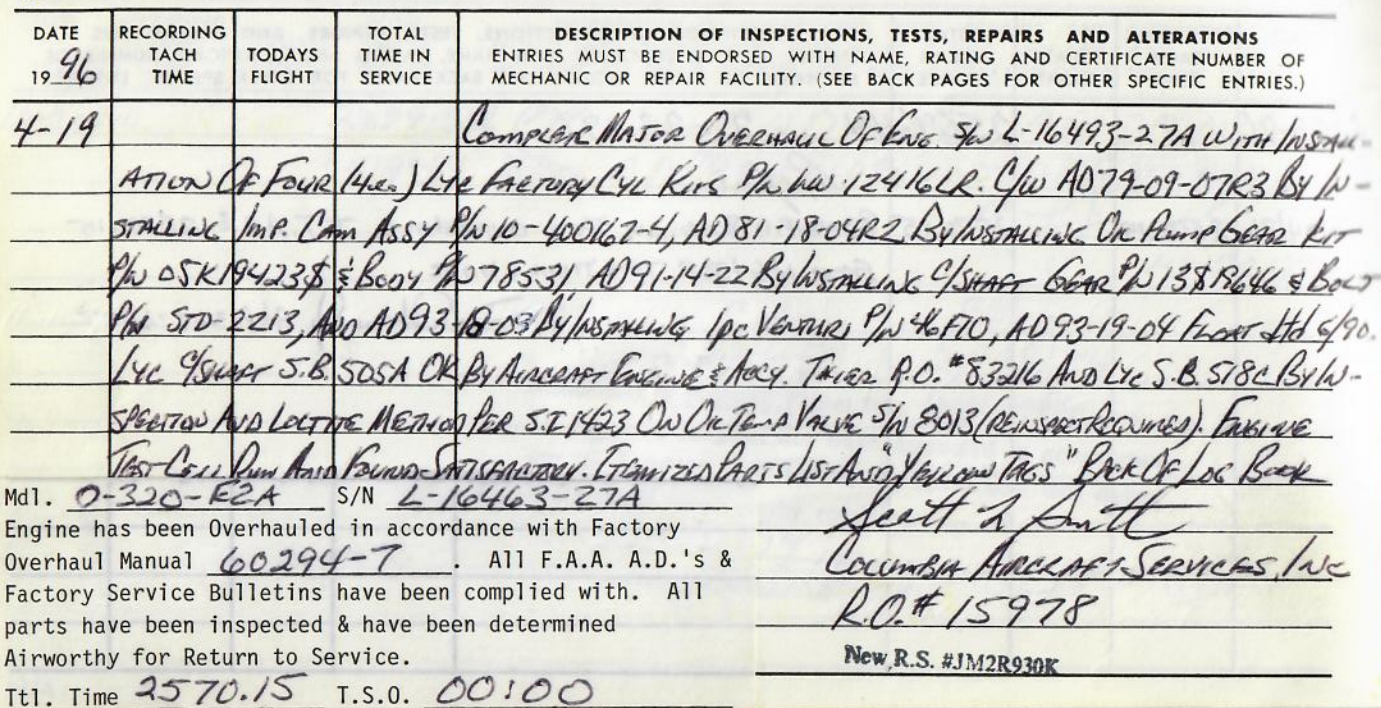 DATE RECORDING TOTAL DESCRIPTION OF INSPECTIONS, TESTS, REPAIRS AND ALTERATIONS
TACH TODAYS TIME IN ENTRIES MUST BE ENDORSED WITH NAME, RATING AND CERTIFICATE NUMBER OF
19 96 TIME FLIGHT SERVICE MECHANIC OR REPAIR FACILITY. (SEE BACK PAGES FOR OTHER SPECIFIC ENTRIES.)
4-19 COMPLETE MAJOR OVERHAUL OF ENG. S/N L-16493-27A WITH INSTALL-
ATION OF FOUR (4ea.) LYC FACTORY CYL KITS P/N LW-12416LR. C/W AD79-09-07R3 BY IN-
STALLING IMP. CAM ASSY P/N 10-400167-4, AD81-18-04R2 BY INSTALLING OIL PUMP GEAR KIT
P/N 05K19423$ & BODY P/N 78531, AD91-14-22 BY INSTALLING C/SHAFT GEAR P/N 13S19646 & BOLT
P/N STD-2213, AND AD93-18-03 BY INSTALLING 1pc VENTURI P/N 46F10, AD93-19-04 FLOAT 6/90.
LYC C/SHAFT S.B. 505A OK BY AIRCRAFT ENGINE & ACCY. THIER R.O. #83216 AND LYC S.B. 518C BY IN-
SPECTION AND LOCTITE METHOD PER S.I 1423 ON OIL TEMP VALVE S/N 8013 (REINSPECT REQUIRED). ENGINE
TEST CELL RUN AND FOUND SATISFACTORY. ITEMIZED PARTS LIST AND "YELLOW TAGS" BACK OF LOG BOOK
Mdl. O-320-E2A S/N L-16463-27A
Scott L Smith
Engine has been Overhauled in accordance with Factory
Overhaul Manual 60294-7 . All F.A.A. A.D.'s &
COLUMBIA AIRCRAFT SERVICES, INC
Factory Service Bulletins have been complied with. All
R.O.# 15978
parts have been inspected & have been determined
Airworthy for Return to Service.
New R.S. #JM2R930K
Ttl. Time 2570.15 T.S.O. 00:00